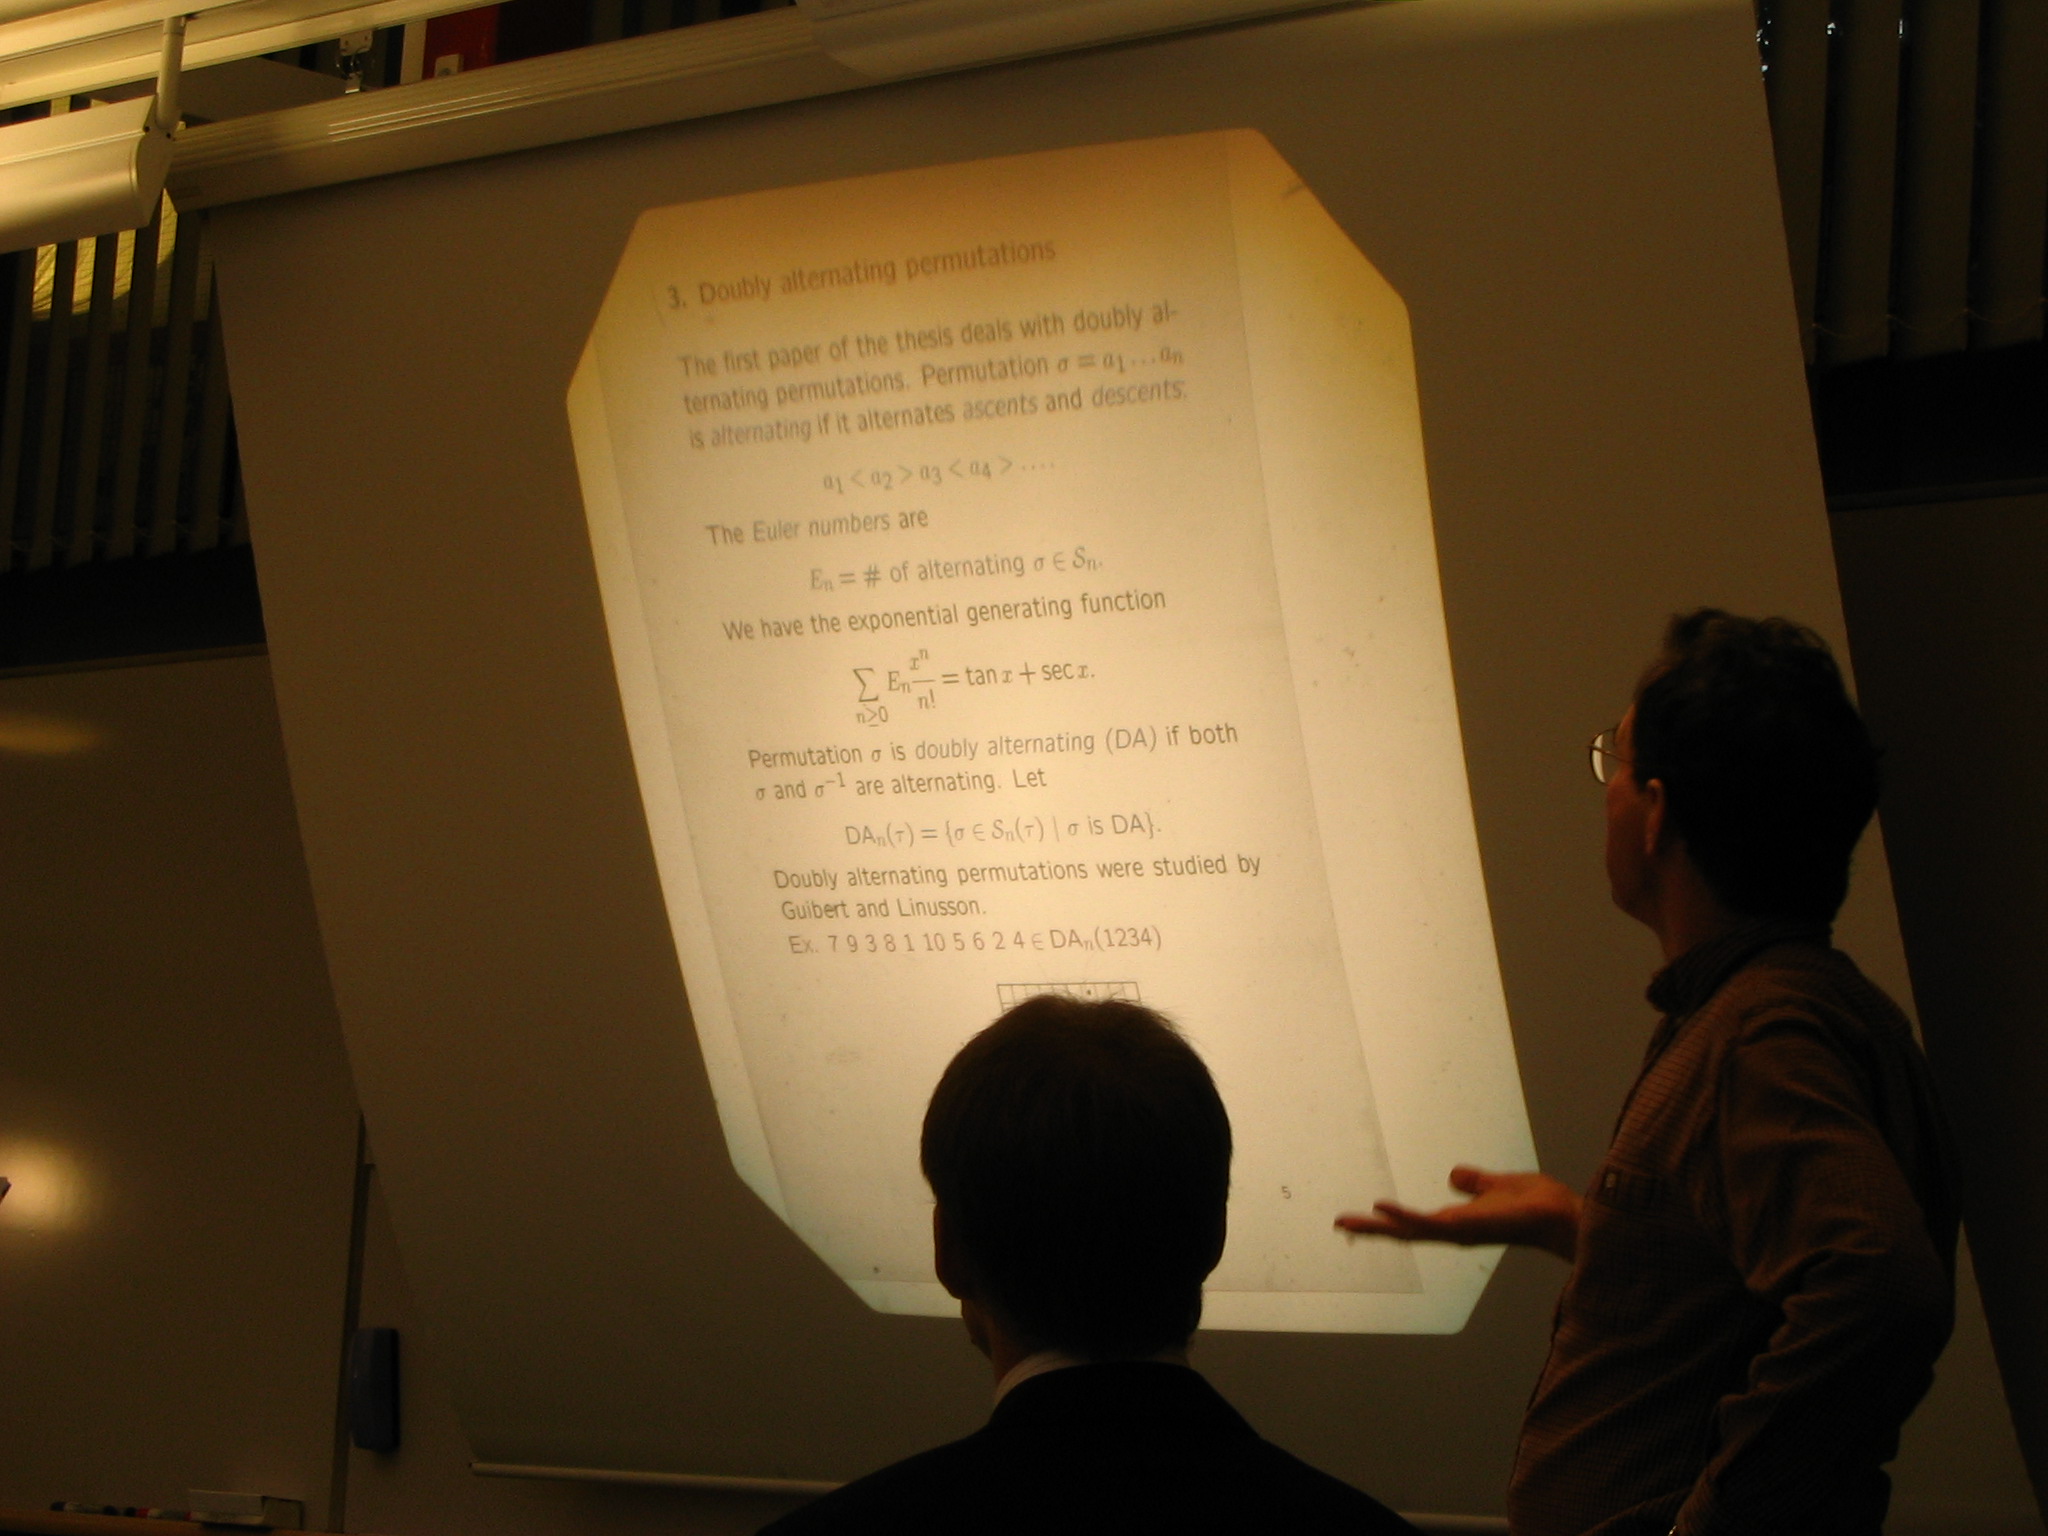 3. Doubly alternating permutations
The first paper of the thesis deals with doubly al-
ternating permutations. Permutation σ = a₁ … aₙ
is alternating if it alternates ascents and descents:
a₁ < a₂ > a₃ < a₄ > ....
The Euler numbers are
Eₙ = # of alternating σ ∈ Sₙ.
We have the exponential generating function
∑_{n≥0} Eₙ xⁿ/n! = tan x + sec x.
Permutation σ is doubly alternating (DA) if both
σ and σ⁻¹ are alternating. Let
DAₙ(τ) = {σ ∈ Sₙ(τ) | σ is DA}.
Doubly alternating permutations were studied by
Guibert and Linusson.
Ex. 7 9 3 8 1 10 5 6 2 4 ∈ DAₙ(1234)
5